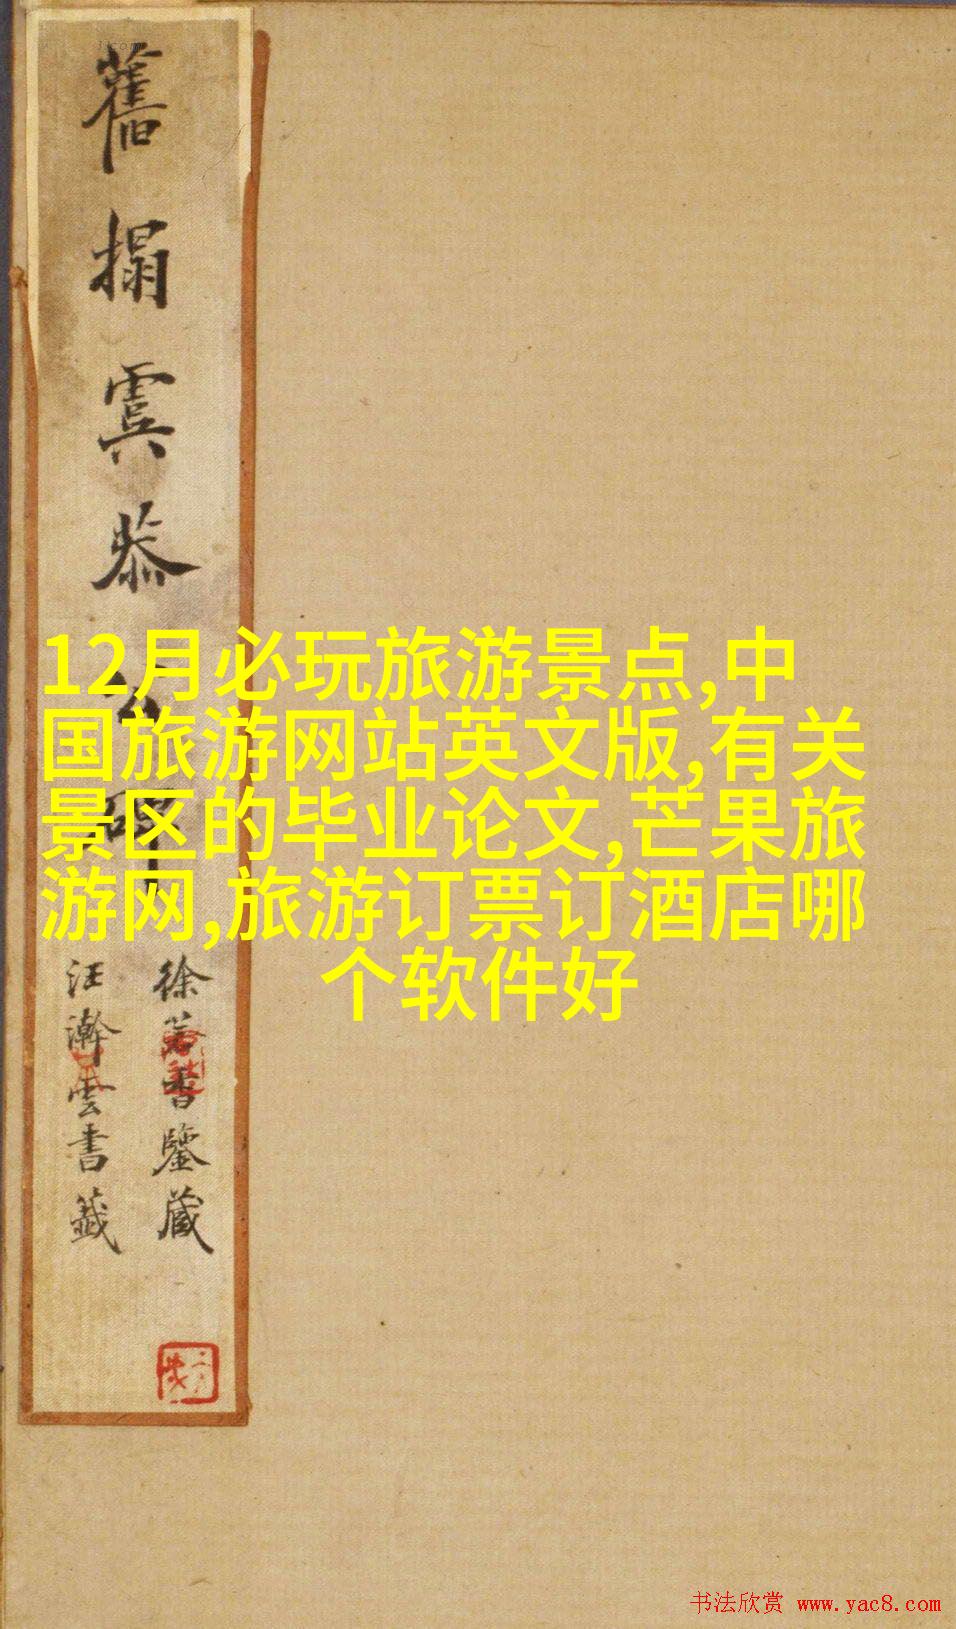 舊搨虞恭公碑
徐若書鑒藏
汪瀚雲書籤
12月必玩旅游景点,中
国旅游网站英文版,有关
景区的毕业论文,芒果旅
游网,旅游订票订酒店哪
个软件好
书法欣赏 www.yac8.com